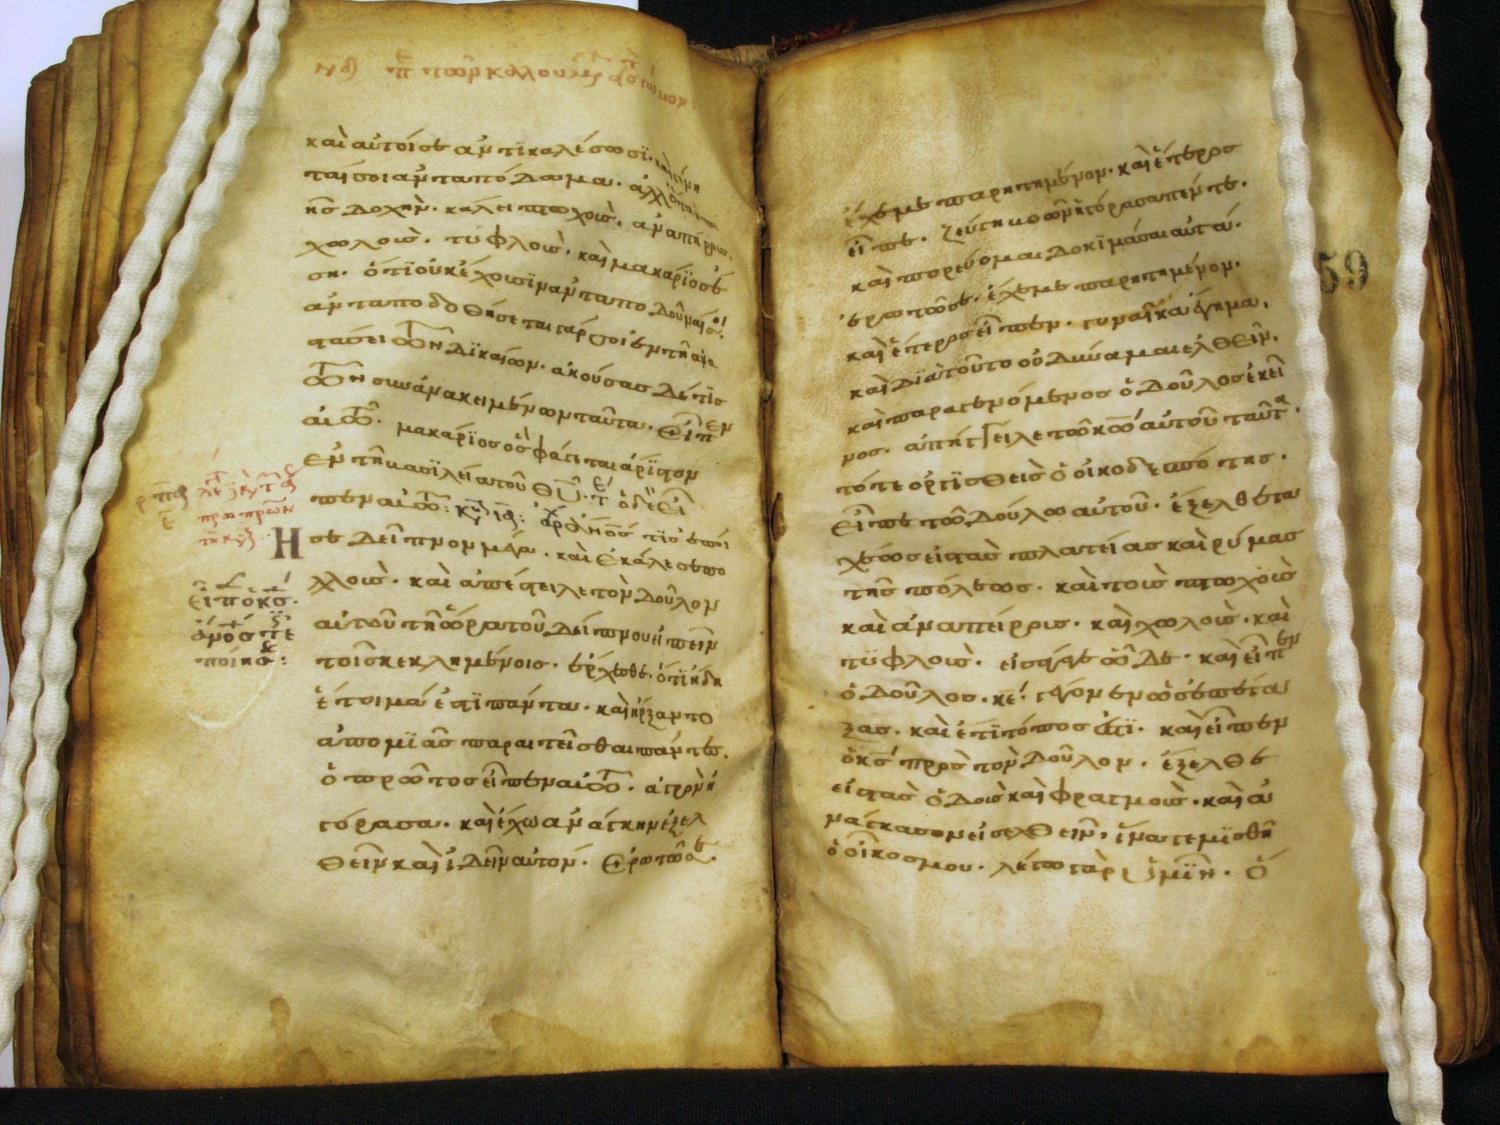 νδ π τῶν καλουμ ἐν τῶ δείπνω
καὶ αὐτοί σε ἀντικαλέσωσι· καὶ γένη
ταί σοι ἀνταπόδωμα· ἀλλ' ὅταν ποι
ῆς δοχὴν· κάλει πτωχοὺς, ἀναπήρους,
χωλοὺς, τυφλοὺς, καὶ μακάριος ἔ
ση· ὅτι οὐκ ἔχουσιν ἀνταποδοῦναί σοι·
ἀνταποδοθήσεται γάρ σοι ἐν τῆ ἀνα
στάσει τῶν δικαίων· ἀκούσας δέ τις
τῶν συνανακειμένων ταῦτα· εἶπεν
αὐτῶ· μακάριος ὃς φάγεται ἄριστον
ἐν τῆ βασιλεία τοῦ θῦ· ὁ δὲ εἶ
πεν αὐτῶ· ἄνος τις ἐποί
Ησε δεῖπνον μέγα· καὶ ἐκάλεσε πο
λλοὺς· καὶ ἀπέστειλε τὸν δοῦλον
αὐτοῦ τῆ ὥρα τοῦ δείπνου εἰπεῖν
τοῖς κεκλημένοις· ἔρχεσθε· ὅτι ἤδη
ἕτοιμά ἐστι πάντα· καὶ ἤρξαντο
ἀπο μιᾶς παραιτεῖσθαι πάντες.
ὁ πρῶτος εἶπεν αὐτῶ· ἀγρὸν ἠ
γόρασα· καὶ ἔχω ἀνάγκην ἐξελ
θεῖν καὶ ἰδεῖν αὐτόν· ἐρωτῶ σε·
εἶπ ὁ κς·
ἄνος τις
ἐποίησε:
59
ἔχε με παρητημένον· καὶ ἕτερος
εἶπε· ζεύγη βοῶν ἠγόρασα πέντε·
καὶ πορεύομαι δοκιμάσαι αὐτά·
ἐρωτῶ σε· ἔχε με παρητημένον·
καὶ ἕτερος εἶπεν· γυναῖκα ἔγημα,
καὶ διατοῦτο οὐ δύναμαι ἐλθεῖν.
καὶ παραγενόμενος ὁ δοῦλος ἐκεῖ
νος· ἀπήγγειλε τῶ κῶ αὐτοῦ ταῦτα·
τότε ὀργισθεὶς ὁ οἰκοδεσπότης·
εἶπε τῶ δούλω αὐτοῦ· ἔξελθε τα
χέως εἰς τὰς πλατείας καὶ ρύμας
τῆς πόλεως· καὶ τοὺς πτωχοὺς
καὶ ἀναπείρους· καὶ χωλοὺς· καὶ
τυφλοὺς· εἰσάγαγε ὧδε· καὶ εἶπεν
ὁ δοῦλος· κε· γέγονεν ὡς ἐπέτα
ξας· καὶ ἔτι τόπος ἐστί· καὶ εἶπεν
ὁ κς πρὸς τὸν δοῦλον· ἔξελθε
εἰς τὰς ὁδοὺς καὶ φραγμοὺς· καὶ ἀ
νάγκασον εἰσελθεῖν, ἵνα γεμισθῆ
ὁ οἶκος μου· λέγω γὰρ ὑμῖν· ὅ